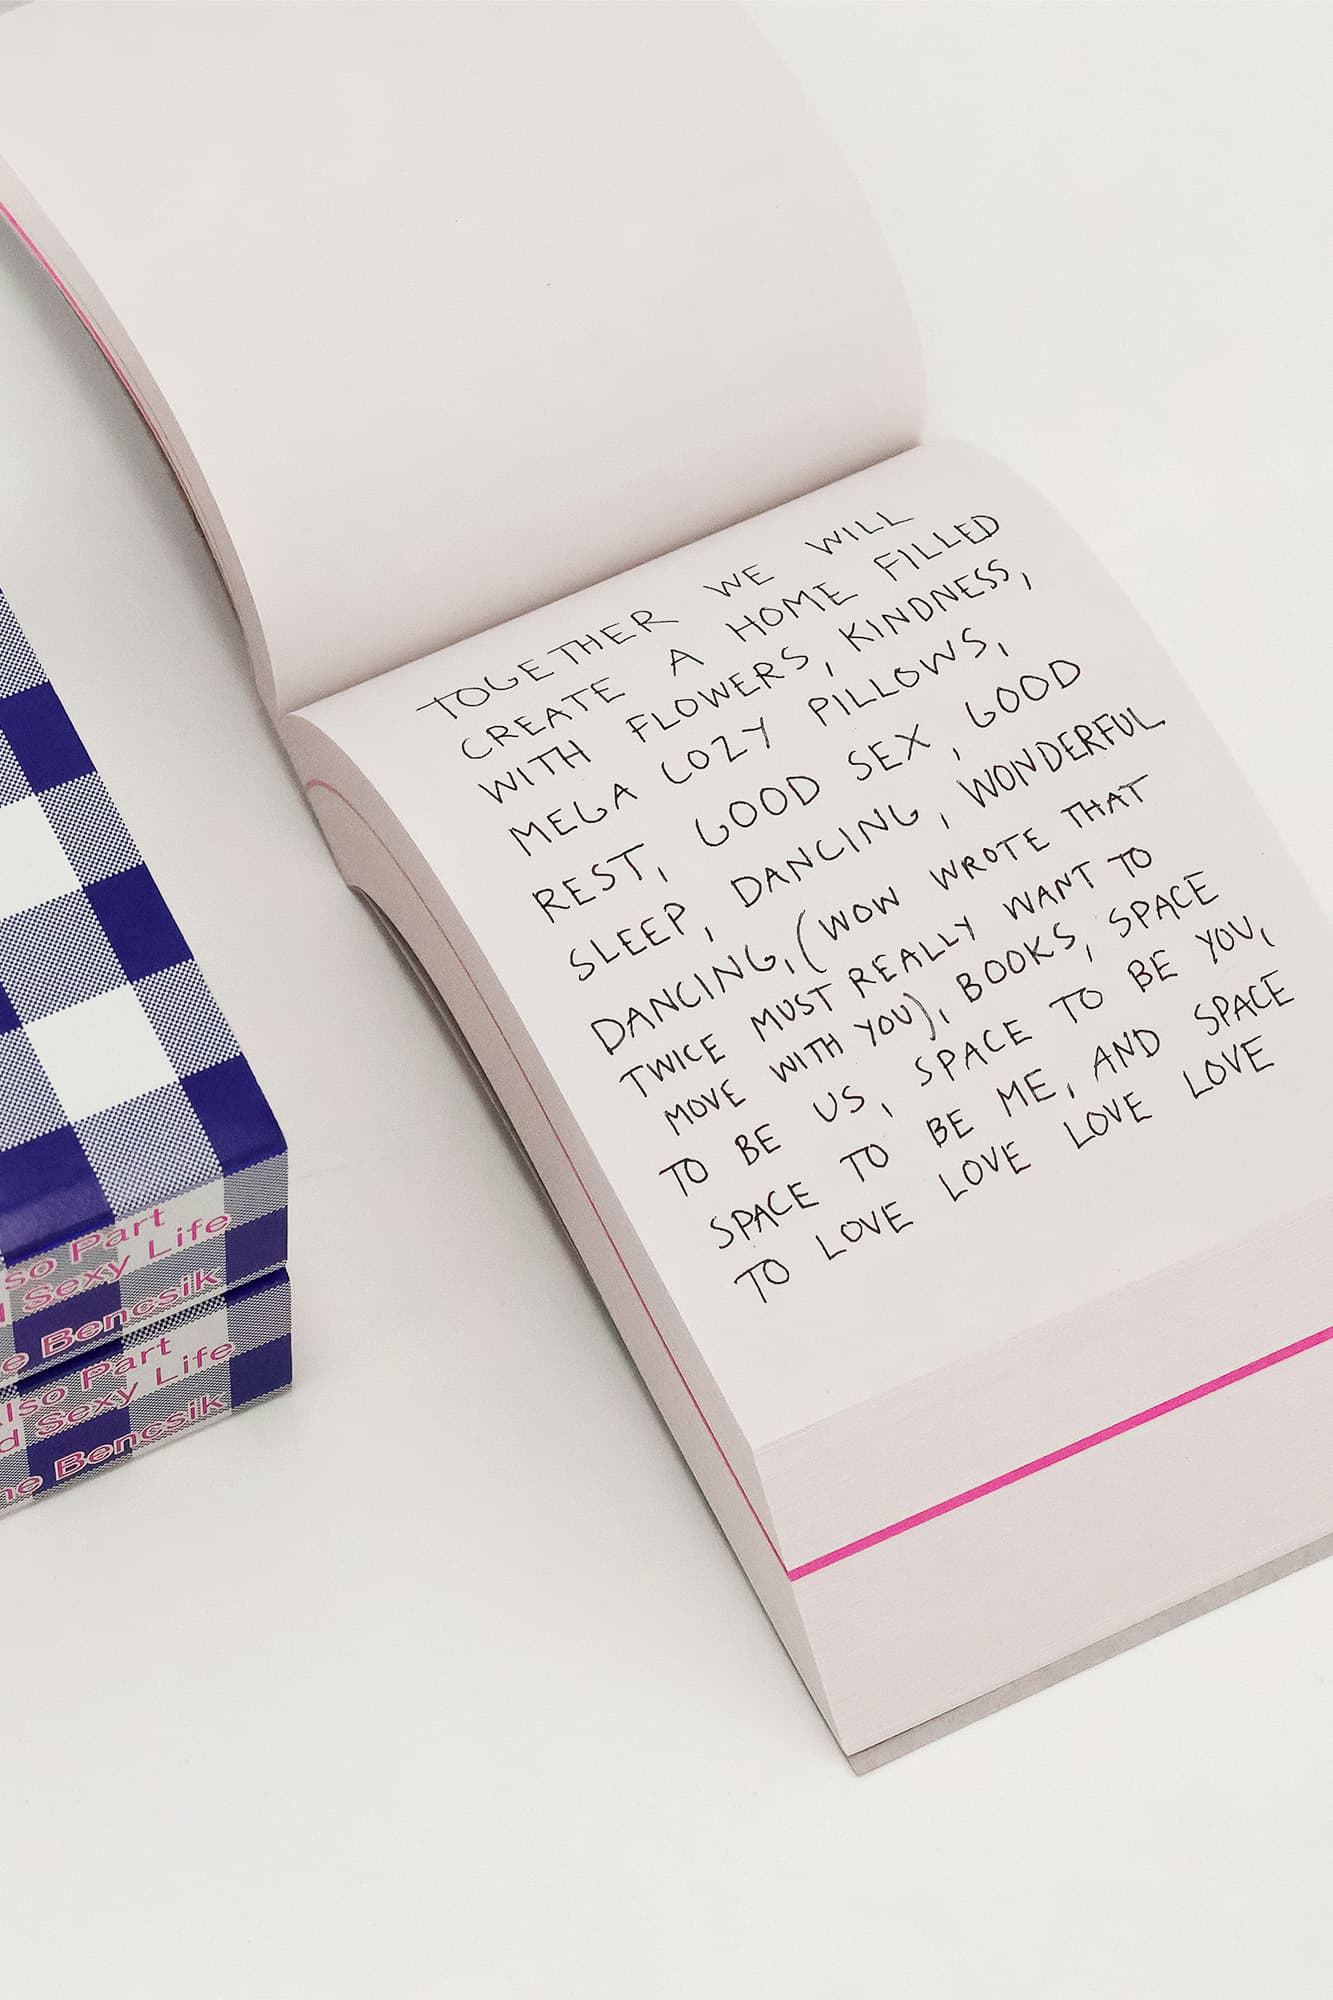 TOGETHER WE WILL
CREATE A HOME FILLED
WITH FLOWERS, KINDNESS,
MEGA COZY PILLOWS,
REST, GOOD SEX, GOOD
SLEEP, DANCING, WONDERFUL
DANCING, (WOW WROTE THAT
TWICE MUST REALLY WANT TO
MOVE WITH YOU), BOOKS, SPACE
TO BE US, SPACE TO BE YOU,
SPACE TO BE ME, AND SPACE
TO LOVE LOVE LOVE LOVE
Part
Sexy Life
Bencsik
Part
Sexy Life
Bencsik